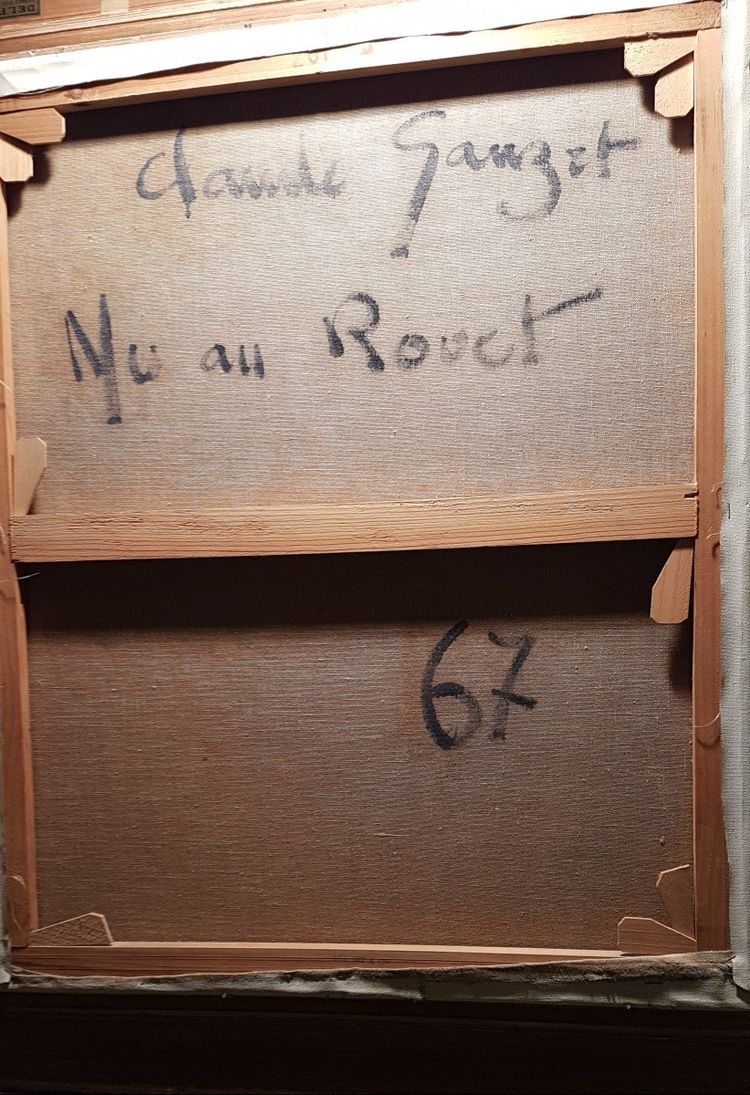 Claude Gauzet
Nu au Rouet
67